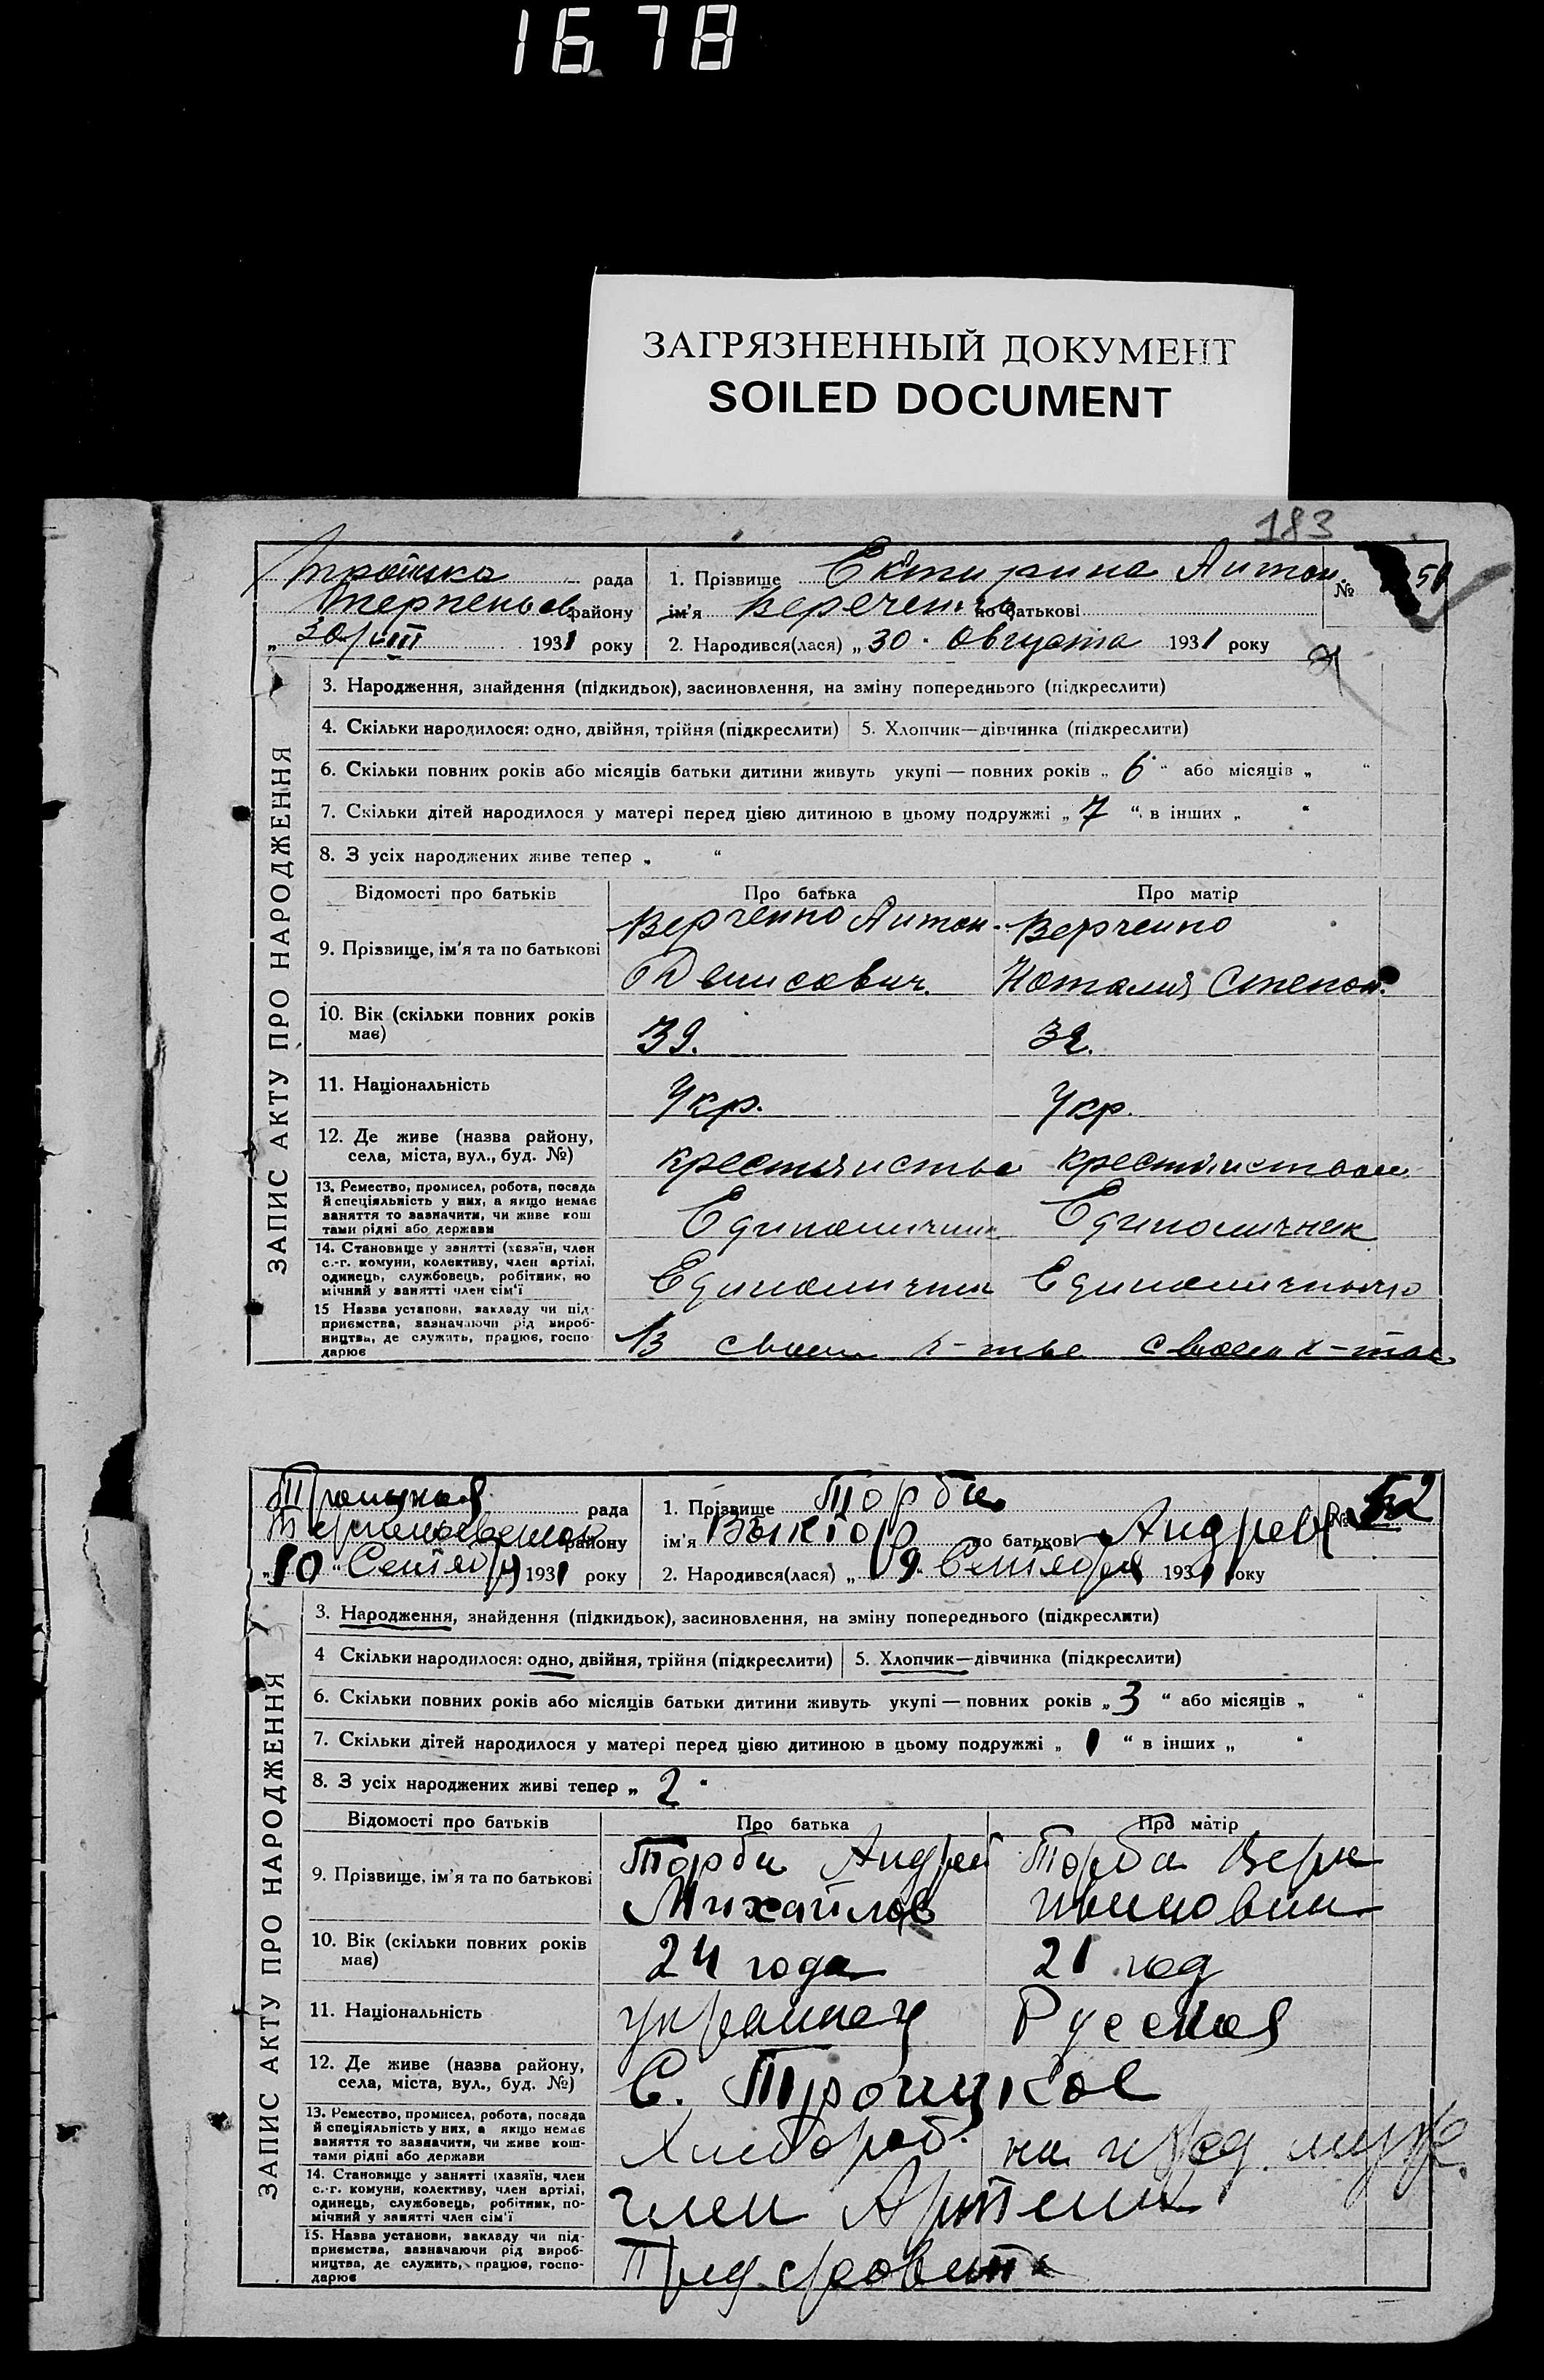 1678
ЗАГРЯЗНЕННЫЙ ДОКУМЕНТ
SOILED DOCUMENT
183
рада
району
30/VIII 1931 року
1. Прізвище Антон.
ім'я по батькові
№
2. Народився(лася) „30. Августа 1931 року
ЗАПИС АКТУ ПРО НАРОДЖЕННЯ
3. Народження, знайдення (підкидьок), засиновлення, на зміну попереднього (підкреслити)
4. Скільки народилося: одно, двійня, трійня (підкреслити) 5. Хлопчик—дівчинка (підкреслити)
6. Скільки повних років або місяців батьки дитини живуть укупі — повних років „ 6 “ або місяців „ “
7. Скільки дітей народилося у матері перед цією дитиною в цьому подружжі „ 7 “ в інших „ “
8. З усіх народжених живе тепер „ “
Відомості про батьків Про батька Про матір
9. Прізвище, ім'я та по батькові Верченко Антон Верченко
Денисович. Наталия Степон.
10. Вік (скільки повних років
має) 39. 32.
11. Національність Укр. Укр.
12. Де живе (назва району,
села, міста, вул., буд. №)
13. Ремество, промисел, робота, посада
й спеціяльність у них, а якщо немає
заняття то зазначити, чи живе кош
тами рідні або держави
14. Становище у занятті (хазяїн, член
с.-г. комуни, колективу, член артілі,
одинець, службовець, робітник, по
мічний у занятті член сім'ї
15 Назва установи, закладу чи під-
приємства, зазначаючи рід вироб-
ництва, де служить, працює, госпо
дарює
В
Троицкая рада
району
„10“ Сентября 1931 року
1. Прізвище Торба
ім'я Виктор по батькові Андреев
№ 52
2. Народився(лася) „ 9 “ Сентября 1931 року
ЗАПИС АКТУ ПРО НАРОДЖЕННЯ
3. Народження, знайдення (підкидьок), засиновлення, на зміну попереднього (підкреслити)
4 Скільки народилося: одно, двійня, трійня (підкреслити) 5. Хлопчик—дівчинка (підкреслити)
6. Скільки повних років або місяців батьки дитини живуть укупі — повних років „ 3 “ або місяців „ “
7. Скільки дітей народилося у матері перед цією дитиною в цьому подружжі „ 1 “ в інших „ “
8. З усіх народжених живі тепер „ 2 “
Відомості про батьків Про батька Про матір
9. Прізвище, ім'я та по батькові Торба Андрей Торба Вера
Михайлов
10. Вік (скільки повних років
має) 24 года 21 год
11. Національність украинец Русская
12. Де живе (назва району,
села, міста, вул., буд. №) С. Троицкое
13. Ремество, промисел, робота, посада
й спеціяльність у них, а якщо немає
заняття то зазначити, чи живе кош-
тами рідні або держави Хлебороб. на
14. Становище у занятті (хазяїн, член
с.-г. комуни, колективу, член артілі,
одинець, службовець, робітник, по-
мічний у занятті член сім'ї член Артели
15. Назва установи, закладу чи під-
приємства, зазначаючи рід вироб-
ництва, де служить, працює, госпо-
дарює